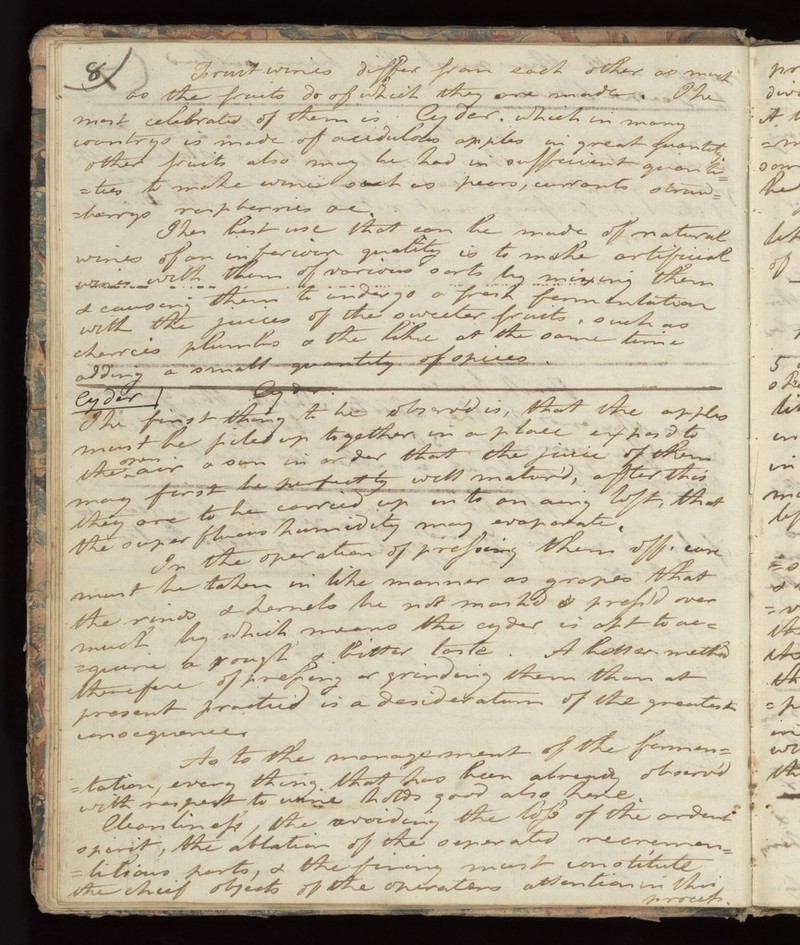 8
Fruit wines differ from each other as much
as the fruits do of which they are made. The
most celebrated of them is Cyder. which in many
countrys is made of acidulous apples in great quantity
other fruits also may be had in sufficient quanti=
=ties to make wine such as pears, currants straw=
=berrys raspberries &c.
The best use that can be made of natural
wines of an inferiour quality is to make artificial
wines with them of various sorts by mixing them
& causing them to undergo a fresh fermentation
with the juices of the sweeter fruits, such as
cherries plumbs & the like at the same time
adding a small quantity of spices.
Cyder Cyder.
The first thing to be observ'd is, that the apples
must be piled up together in a place expos'd to
the open air & sun in order that the juice of them
may first be perfectly well matur'd, after this
they are to be carried up into an airy loft, that
the superfluous humidity may evaporate.
In the operation of pressing them off. care
must be taken in like manner as grapes that
the rinds & kernels be not mash'd & press'd over
much by which means the cyder is apt to ac=
=quire a rough & bitter taste. A better method
therefore of pressing or grinding them than at
present practic'd is a desideratum of the greatest
consequence.
As to the management of the fermen=
=tation, every thing that has been already observ'd
with respect to wine holds good also here.
Cleanliness, the avoiding the loss of the ardent
spirit, the ablation of the seperated recremen=
=titious parts, & the fining must constitute
the chief objects of the operators attention in this
process.